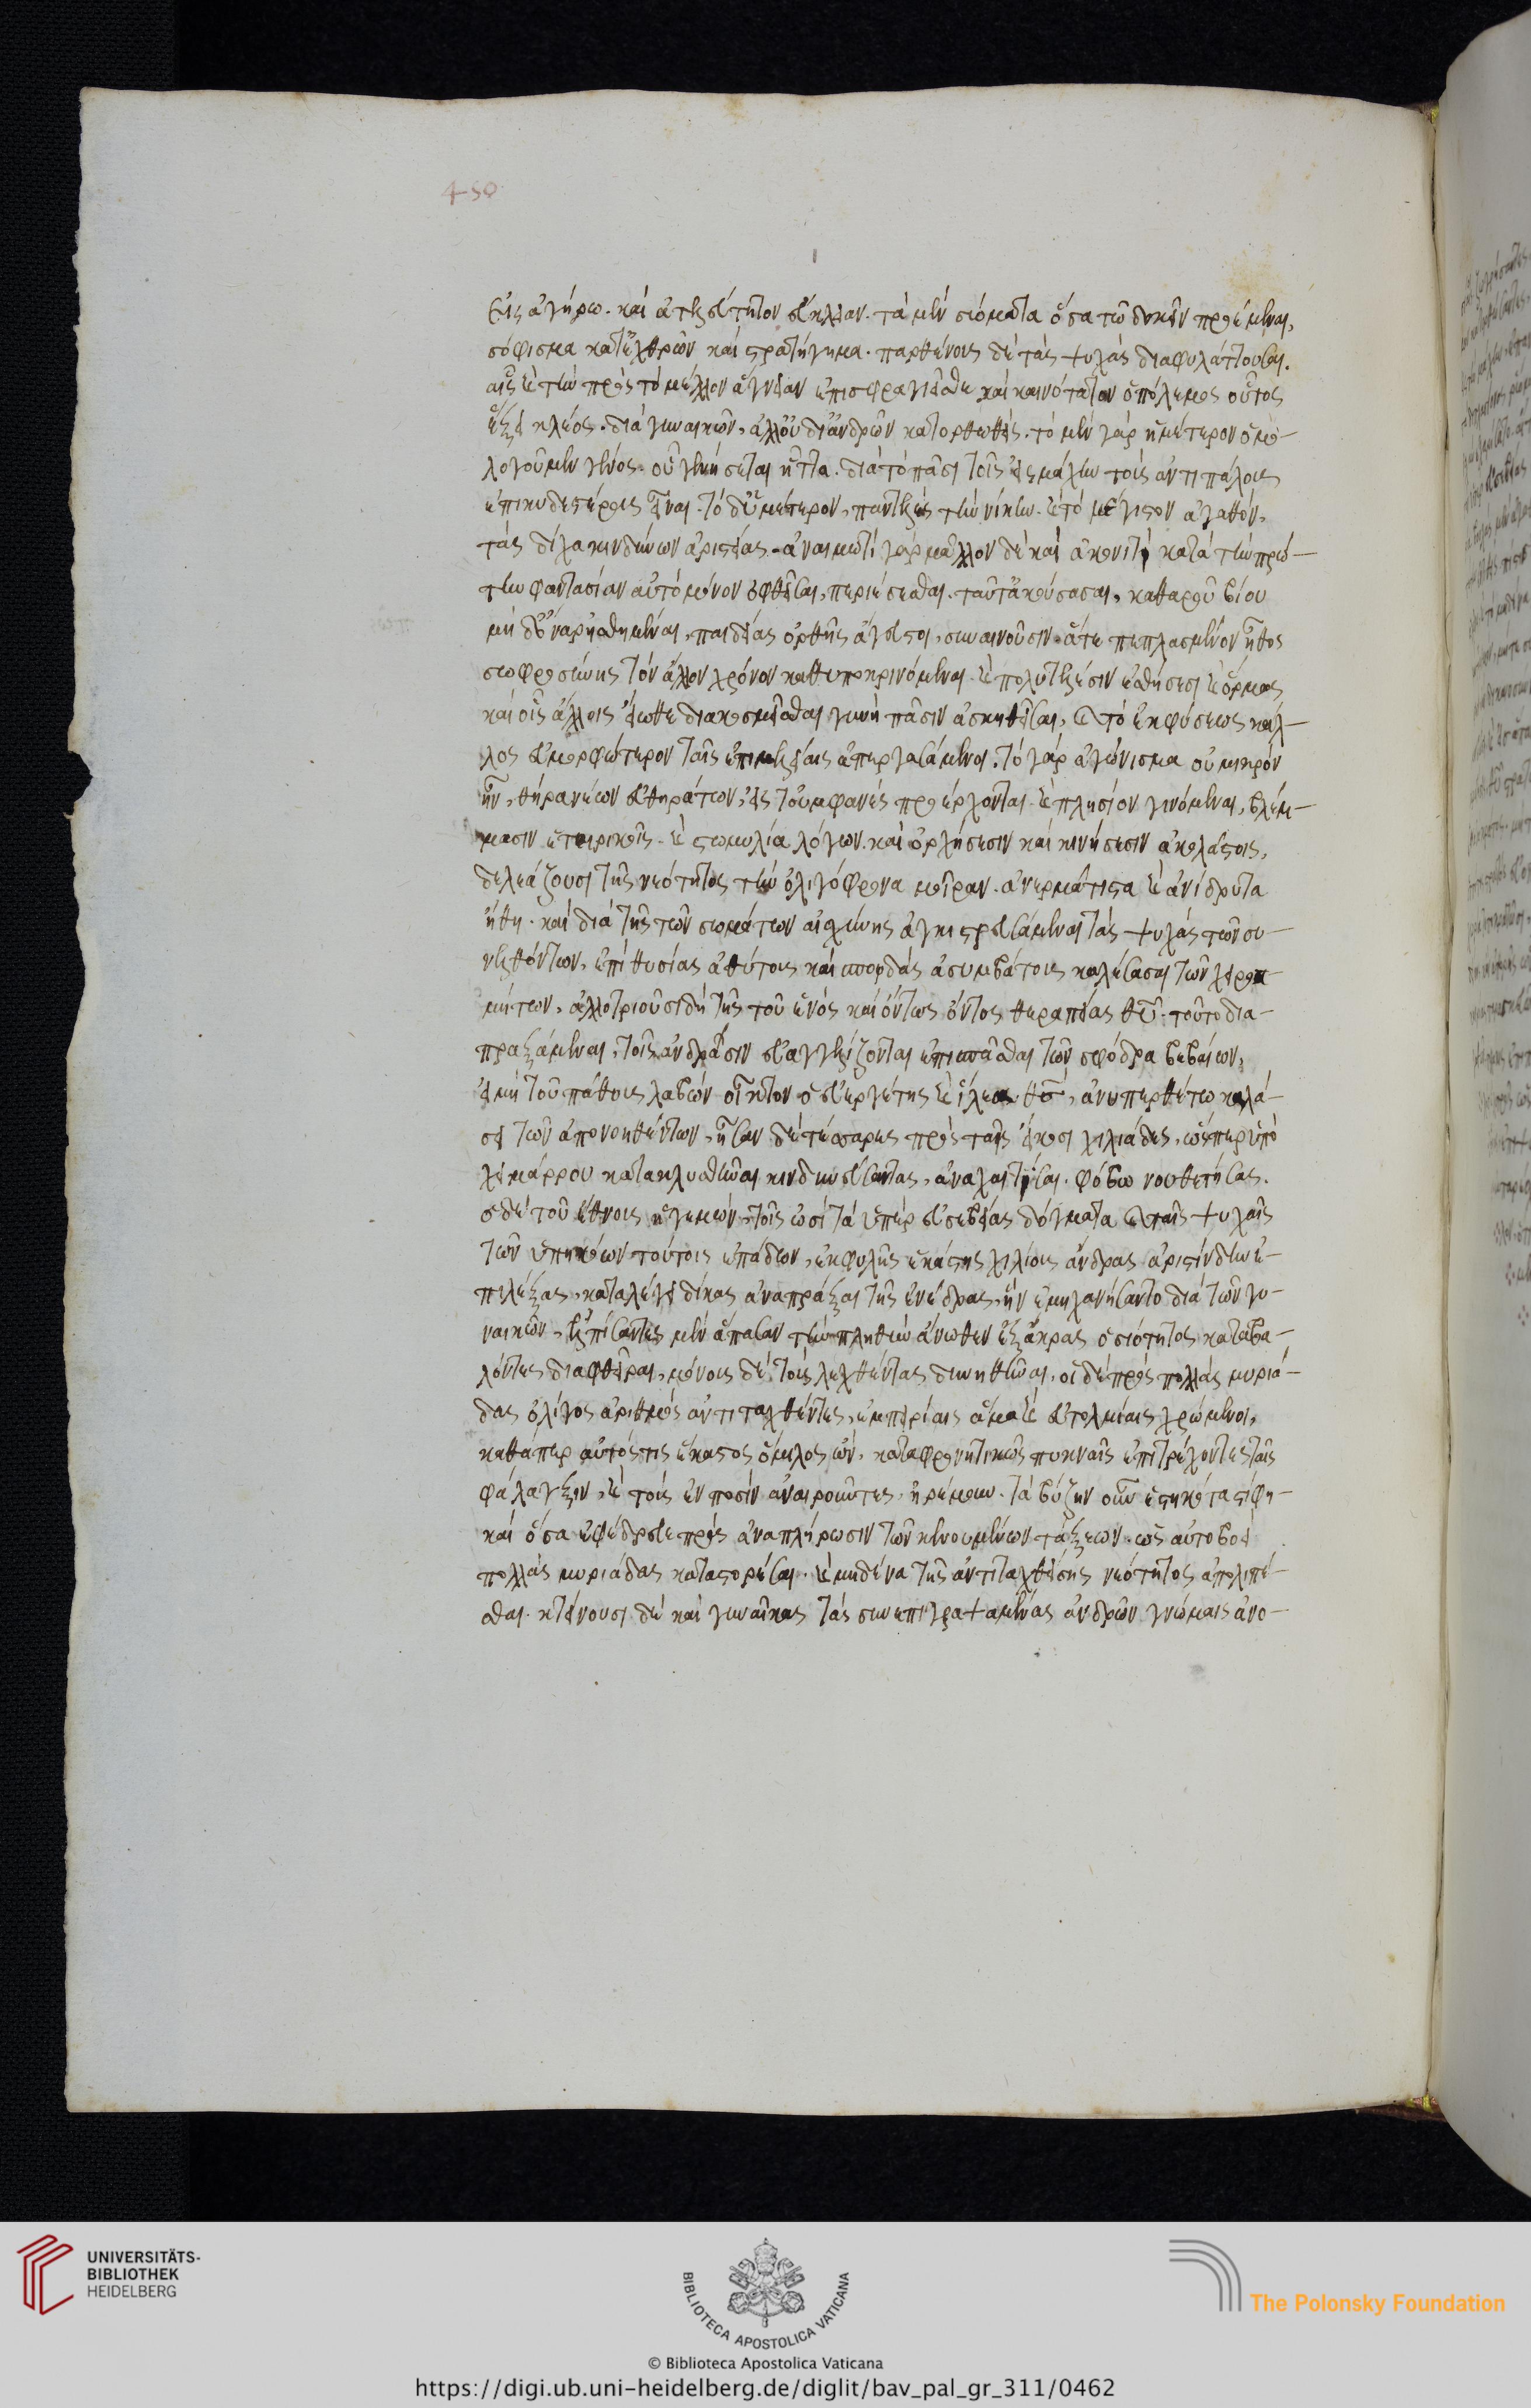 450
εἰς ἀγήρω. καὶ ἀτελεύτητον εὔκλειαν. τὰ μὲν σώματα ὅσα τῶ δοκεῖν προέμεναι,
σόφισμα κατ' ἐχθρῶν καὶ στρατήγημα. παρθένους δὲ τὰς ψυχὰς διαφυλάττουσαι.
αἷς καὶ τὴν πρὸς τὸ μέλλον ἁγνείαν ἐπισφραγιεῖσθε καὶ καινότατον ὁ πόλεμος οὗτος
ἕξει κλέος. διὰ γυναικῶν, ἀλλ' οὐ δι' ἀνδρῶν κατορθωθείς. τὸ μὲν γὰρ ἡμέτερον ὁμο-
λογοῦμεν γένος. οὐ γενήσεται ἧττα. διὰ τὸ πᾶσι τοῖς εἰς μάχην τοὺς ἀντιπάλους
ἐπικυδεστέρους εἶναι. τὸ δ' ὑμέτερον, παντελεῖς τὴν νίκην. καὶ τὸ μέγιστον ἀγαθόν,
τὰς δίχα κινδύνων ἀριστείας. ἀναιμωτὶ γὰρ μᾶλλον δὲ καὶ ἀκονιτὶ κατὰ τὴν πρώ-
την φαντασίαν αὐτὸ μόνον ὀφθεῖσαι, περιέσεσθαι. ταῦτ' ἀκούσασαι, καθαροῦ βίου
μὴ δ' ὄναρ ᾐσθημέναι, παιδείας ὀρθῆς ἄγευστοι, συναινοῦσιν. ἅτε πεπλασμένον ἦθος
σωφροσύνης τὸν ἄλλον χρόνον καθυποκρινόμεναι. καὶ πολυτελέσιν ἐσθήσεσι καὶ ὅρμοις
καὶ οἷς ἄλλοις εἴωθε διακοσμεῖσθαι γυνὴ πᾶσιν ἀσκηθεῖσαι, καὶ τὸ ἐκ φύσεως κάλ-
λος εὐμορφώτερον ταῖς ἐπιμελείαις ἀπεργασάμεναι. τὸ γὰρ ἀγώνισμα οὐ μικρὸν
ἦν, θήρα νέων ἀθηράτων, εἰς τοὐμφανὲς προέρχονται. καὶ πλησίον γινόμεναι, βλέμ-
μασιν ἑταιρικοῖς. καὶ στωμυλία λόγων. καὶ ὀρχήσεσιν καὶ κινήσεσιν ἀκολάστοις,
δελεάζουσι τῆς νεότητος τὴν ὀλιγόφρονα μοῖραν. ἀνερμάτιστα καὶ ἀνίδρυτα
ἤθη. καὶ διὰ τῆς τῶν σωμάτων αἰσχύνης ἀγκιστρευσάμεναι τὰς ψυχὰς τῶν συ-
νελθόντων, ἐπὶ θυσίας ἀθύτους καὶ σπονδὰς ἀσυμβάτους καλέσασαι τῶν χειροκ
μήτων, ἀλλοτριοῦσι δὴ τῆς τοῦ ἑνὸς καὶ ὄντως ὄντος θεραπείας θῦ. τοῦτο δια-
πραξάμεναι, τοῖς ἀνδράσιν εὐαγγελίζονται ἐπισπᾶσθαι τῶν σφόδρα βεβαίων,
εἰ μὴ τοῦ πάθους λαβὼν οἶκτον ὁ εὐεργέτης καὶ ἵλεως θς, ἀνυπερθέτω κολά-
σει τῶν ἀπονοηθέντων, ἦσαν δὲ τέσσαρες πρὸς ταῖς εἴκοσι χιλιάδες, ὥσπερ ὑπὸ
χειμάρρου κατακλυσθῆναι κινδυνεύσαντας, ἀναχαιτίσαι. φόβω νουθετήσας.
ὁ δὲ τοῦ ἔθνους ἡγεμών, τοῖς ὠσὶ τὰ ὑπὲρ εὐσεβείας δόγματα καὶ ταῖς ψυχαῖς
τῶν ὑπηκόων τούτοις ἐπάδων, ἐκ φυλῆς ἑκάστης χιλίους ἄνδρας ἀριστίνδην ἐ-
πιλέξας, καταλέγει δίκας ἀναπράξαι τῆς ἐνέδρας, ἣν ἐμηχανήσαντο διὰ τῶν γυ-
ναικῶν, ἐλπίσαντες μὲν ἅπασαν τὴν πληθὺν ἄνωθεν ἐξ ἄκρας ὁσιότητος καταβα-
λόντες διαφθεῖραι, μόνους δὲ τοὺς λεχθέντας δυνηθῆναι, οἱ δὲ πρὸς πολλὰς μυριά-
δας ὀλίγος ἀριθμὸς ἀντιταχθέντες, ἐμπειρίαις ἅμα καὶ εὐτολμίαις χρώμενοι,
καθάπερ αὐτός τις ἕκαστος ὅμιλος ὤν, καταφρονητικῶς πυκναῖς ἐπιτρέχοντες ταῖς
φάλαγξιν, καὶ τοὺς ἐν ποσὶν ἀναιροῦντες, ἠρέμουν. τὰ βύζην οὖν ἑστηκότα στίφη-
καὶ ὅσα ἐφέδρευε πρὸς ἀναπλήρωσιν τῶν κενουμένων τάξεων. ὡς αὐτοβοεὶ
πολλὰς μυριάδας καταστορέσαι. καὶ μηδένα τῆς ἀντιταχθείσης νεότητος ἀπολιπέ-
σθαι. κτείνουσι δὲ καὶ γυναῖκας τὰς συνεπιγραψαμένας ἀνδρῶν γνώμαις ἀνο-
UNIVERSITÄTS-
BIBLIOTHEK
HEIDELBERG
BIBLIOTECA APOSTOLICA VATICANA
The Polonsky Foundation
© Biblioteca Apostolica Vaticana
https://digi.ub.uni-heidelberg.de/diglit/bav_pal_gr_311/0462